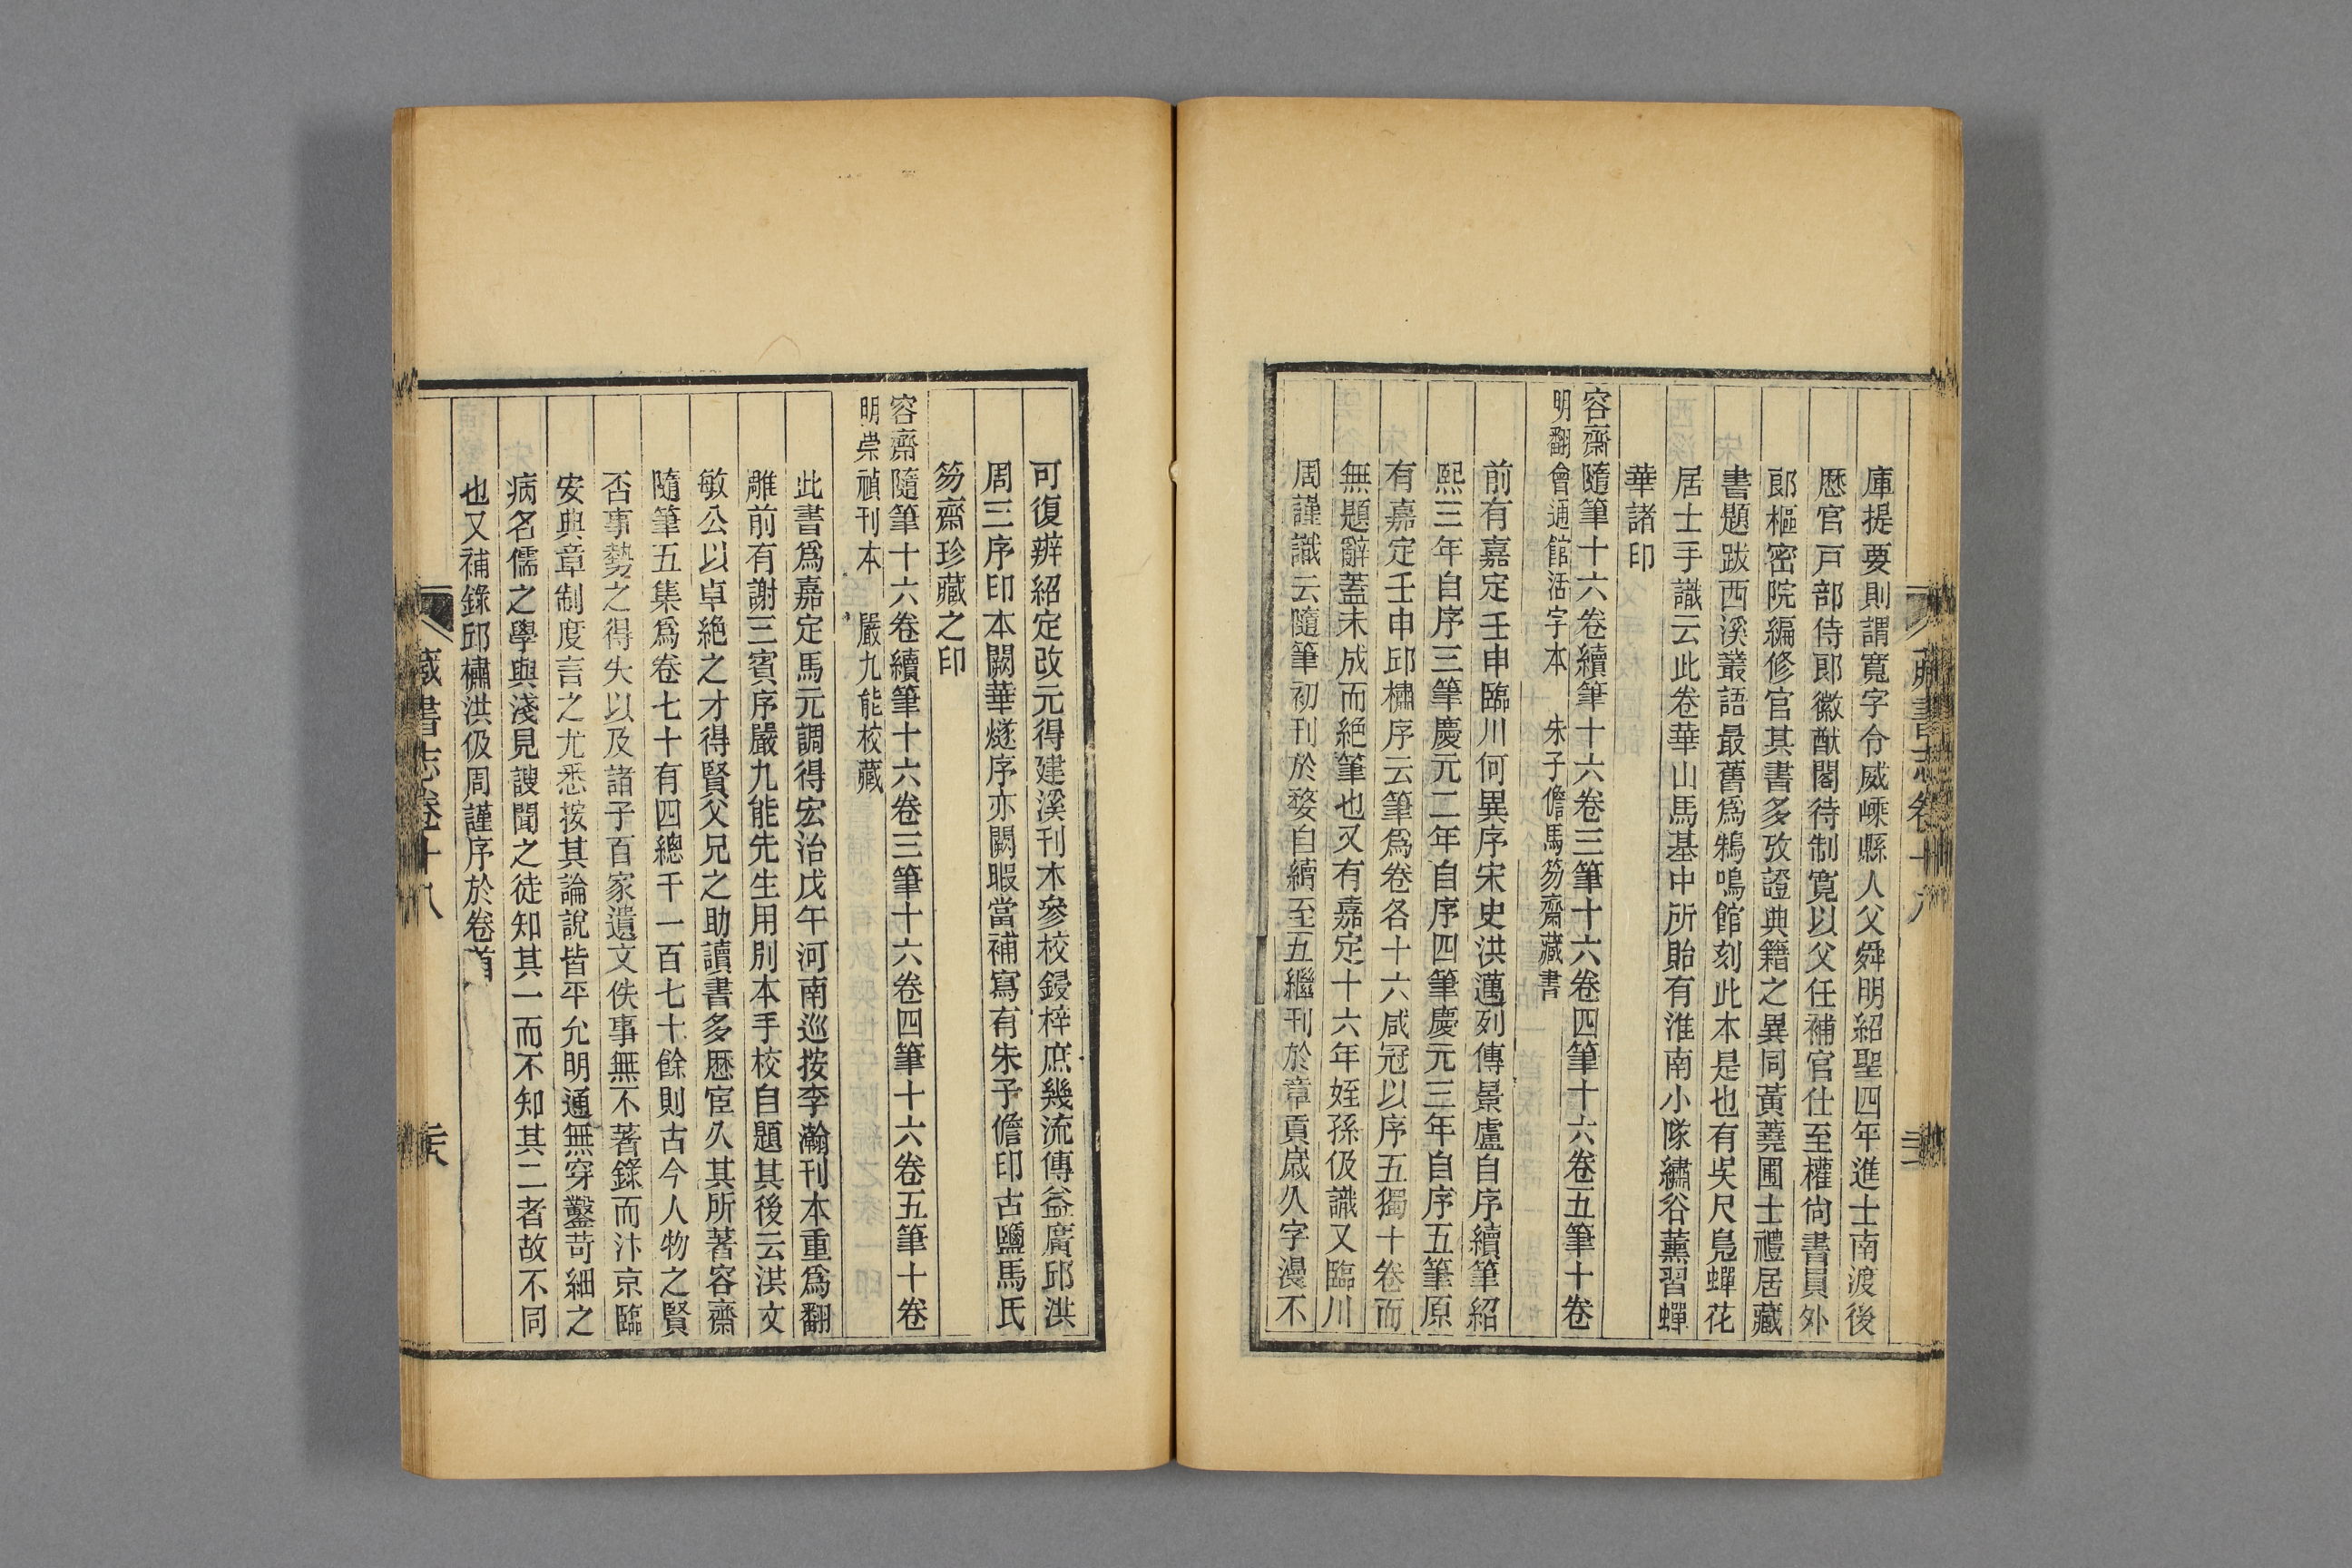 庫提要則謂寬字令威嵊縣人父舜明紹聖四年進士南渡後
歴官戸部侍郎徽猷閣待制寬以父任補官仕至權尙書員外
郎樞密院編修官其書多攷證典籍之異同黃蕘圃士禮居藏
書題跋西溪叢語最舊爲鵁鳴館刻此本是也有吳尺鳧蟬花
居士手識云此卷華山馬基中所貽有淮南小隊繡谷薰習蟬
華諸印
容齋隨筆十六卷續筆十六卷三筆十六卷四筆十六卷五筆十卷
明翻會通館活字本 朱子儋馬笏齋藏書
前有嘉定壬申臨川何異序宋史洪邁列傳景盧自序續筆紹
熙三年自序三筆慶元二年自序四筆慶元三年自序五筆原
有嘉定壬申邱橚序云筆爲卷各十六咸冠以序五獨十卷而
無題辭蓋未成而絶筆也又有嘉定十六年姪孫伋識又臨川
周謹識云隨筆初刊於婺自續至五繼刊於章貢歳久字漫不
藏書志卷十八
可復辨紹定改元得建溪刊木參校鋟梓庶幾流傳益廣邱洪
周三序印本闕華燧序亦闕暇當補寫有朱子儋印古鹽馬氏
笏齋珍藏之印
容齋隨筆十六卷續筆十六卷三筆十六卷四筆十六卷五筆十卷
明崇禎刊本 嚴九能校藏
此書爲嘉定馬元調得宏治戊午河南巡按李瀚刊本重爲翻
雕前有謝三賓序嚴九能先生用別本手校自題其後云洪文
敏公以卓絶之才得賢父兄之助讀書多歴宦久其所著容齋
隨筆五集爲卷七十有四總千一百七十餘則古今人物之賢
否事勢之得失以及諸子百家遺文佚事無不著錄而汴京臨
安典章制度言之尤悉按其論說皆平允明通無穿鑿苛細之
病名儒之學與淺見謏聞之徒知其一而不知其二者故不同
也又補錄邱橚洪伋周謹序於卷首
藏書志卷十八